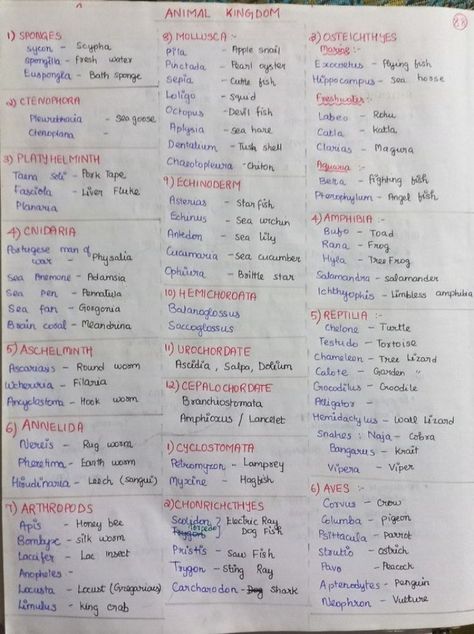 ANIMAL KINGDOM
1) SPONGES
Sycon - Scypha
Spongilla - Fresh water
Euspongia - Bath sponge
2) CTENOPHORA
Pleurobracia - Sea goose
Ctenoplana -
3) PLATYHELMINTH
Taena soli - Pork Tape
Fasciola - Liver Fluke
Planaria
4) CNIDARIA
Portugese man of war - Physalia
Sea Anemone - Adamsia
Sea pen - Pennatula
Sea fan - Gorgonia
Brain coral - Meandrina
5) ASCHELMINTH
Ascariasis - Round worm
Wchereria - Filaria
Ancyclostoma - Hook worm
6) ANNELIDA
Nereis - Rug worm
Pheretima - Earth worm
Hirudinaria - Leech (sangui)
7) ARTHROPODS
Apis - Honey bee
Bombyx - silk worm
Laccifer - Lac insect
Anopheles -
Locusta - Locust (Gregarious)
Limulus - king crab
8) MOLLUSCA :-
Pila - Apple snail
Pinctada - Pearl oyster
Sepia - Cuttle fish
Loligo - Squid
Octopus - Devil fish
Aplysia - Sea hare
Dentalium - Tusk shell
Chaetopleura - Chiton
9) ECHINODERM
Asterias - Star fish
Echinus - Sea urchin
Antedon - Sea lily
Cucumaria - Sea cucumber
Ophiura - Brittle star
10) HEMICHORDATA
Balanoglossus
Saccoglossus
11) UROCHORDATE
Ascidia, Salpa, Dolium
12) CEPALOCHORDATE
Branchiostomata
Amphioxus / Lancelet
1) CYCLOSTOMATA
Petromyzon - Lamprey
Myxine - Hagfish
2) CHONRICHCTHYES
Scolidon ? Electric Ray
Torpedo Dog Fish
Pristis - Saw Fish
Trygon - Sting Ray
Carcharodon - Shark
3) OSTEICHTHYES
Marine :-
Exocoetus - Flying fish
Hippocampus - Sea horse
Freshwater :-
Labeo - Rohu
Catla - katla
Clarias - Magura
Aquaria :-
Beta - Fighting fish
Pterophylum - Angel fish
4) AMPHIBIA :-
Bufo - Toad
Rana - Frog
Hyla - Tree Frog
Salamandra - salamander
Ichthyophis - Limbless amphibia
5) REPTILIA :-
Chelone - Turtle
Testudo - Tortoise
Chameleon - Tree Lizard
Calote - Garden "
Crocodilus - Crocodile
Alligator -
Hemidactylus - Wall Lizard
Snakes : Naja - Cobra
Bangarus - Krait
Vipera - Viper
6) AVES :-
Corvus - Crow
Columba - pigeon
Psittacula - parrot
Strutio - ostrich
Pavo - Peacock
Aptenodytes - Penguin
Neophron - Vulture